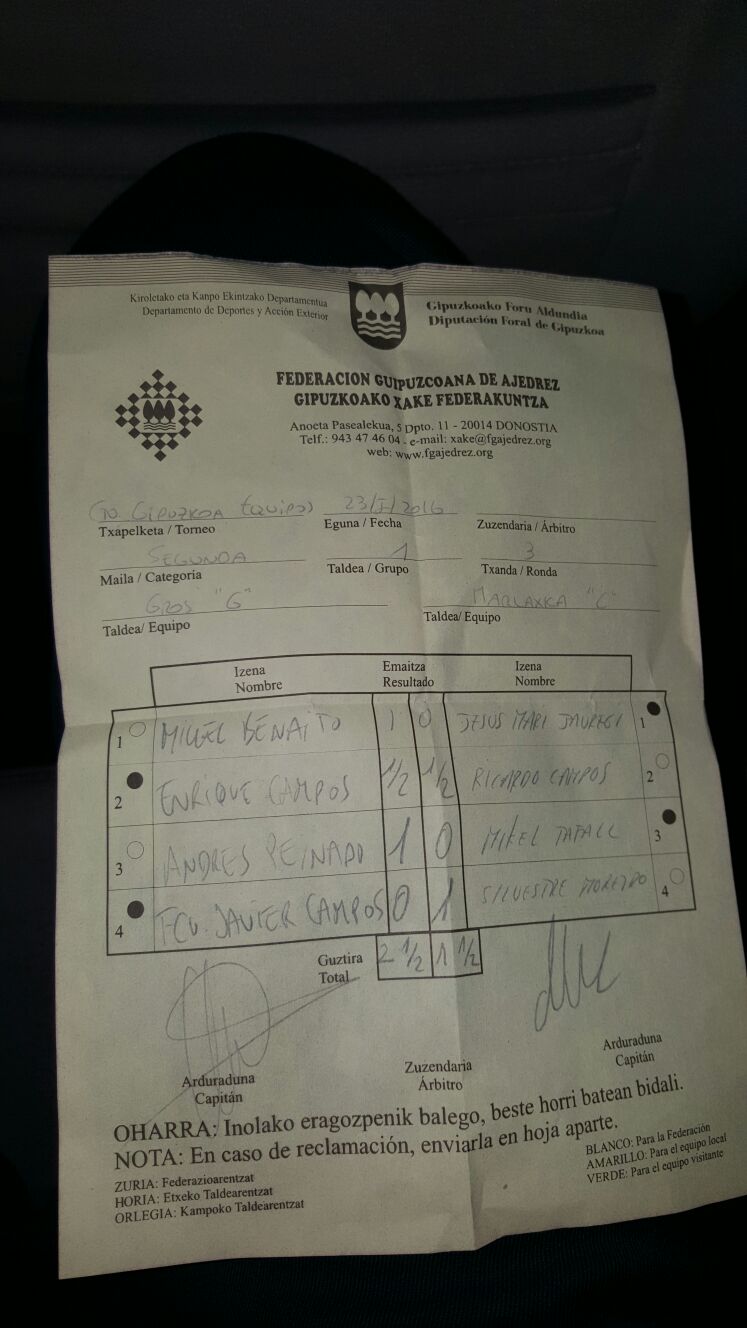 Kiroletako eta Kanpo Ekintzako Departamentua
Departamento de Deportes y Acción Exterior
Gipuzkoako Foru Aldundia
Diputación Foral de Gipuzkoa
FEDERACION GUIPUZCOANA DE AJEDREZ
GIPUZKOAKO XAKE FEDERAKUNTZA
Anoeta Pasealekua, 5 Dpto. 11 - 20014 DONOSTIA
Telf.: 943 47 46 04 - e-mail: xake@fgajedrez.org
web: www.fgajedrez.org
GIPUZKOA EQUIPO) 23/I/2016
Txapelketa / Torneo Eguna / Fecha Zuzendaria / Árbitro
SEGUNDA 1 3
Maila / Categoria Taldea / Grupo Txanda / Ronda
GROS "G" MARLAXKA "C"
Taldea/ Equipo Taldea/ Equipo
Izena Emaitza Izena
Nombre Resultado Nombre
1 MIKEL BENAITO 1 0 JESUS MARI JAUREGI 1
2 ENRIQUE CAMPOS 1/2 1/2 RICARDO CAMPOS 2
3 ANDRES PEINADO 1 0 MIKEL 3
4 FCO. JAVIER CAMPOS 0 1 SILVESTRE 4
Guztira 2 1/2 1 1/2
Total
Arduraduna Zuzendaria Arduraduna
Capitán Árbitro Capitán
OHARRA: Inolako eragozpenik balego, beste horri batean bidali.
NOTA: En caso de reclamación, enviarla en hoja aparte.
ZURIA: Federazioarentzat
HORIA: Etxeko Taldearentzat
ORLEGIA: Kampoko Taldearentzat
BLANCO: Para la Federación
AMARILLO: Para el equipo local
VERDE: Para el equipo visitante